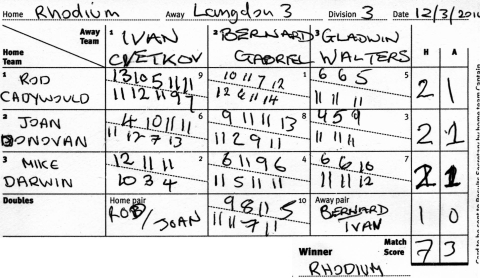 Home Rhodium Away Langdon 3 Division 3 Date 12/3/201
Away Team
Home Team
1 IVAN CVETKOV
2 BERNARD GABRIEL
3 GLADWIN WALTERS
H A
1 ROD CADYWOULD
13 10 5 11 11 9
11 12 11 9 7
10 11 7 12 1
12 11 14
6 6 5 5
11 11 11
2 1
2 JOAN DONOVAN
4 10 11 11 6
11 12 7 13
9 11 11 13 8
11 2 9 11
4 5 9 3
11 11 11
2 1
3 MIKE DARWIN
12 11 11 2
10 3 4
6 11 9 6 4
11 5 11 11
6 6 10 7
11 11 12
2 1
Doubles
Home pair
ROD / JOAN
9 8 11 5 10
11 11 7 11
Away pair
BERNARD
IVAN
1 0
Winner Match Score 7 3
RHODIUM